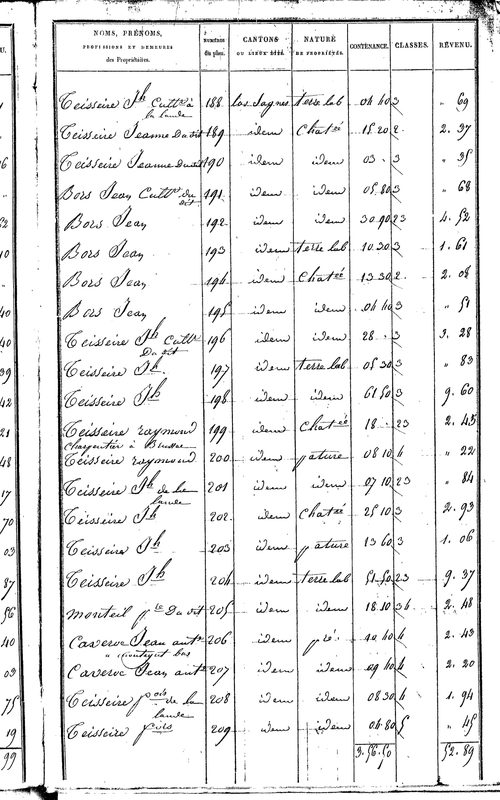 NOMS, PRÉNOMS, PROFESSIONS ET DEMEURES des Propriétaires. NUMÉROS du plan. CANTONS OU LIEUX DITS. NATURE DE PROPRIÉTÉS. CONTENANCE. CLASSES. REVENU.
Teisseire Jh Cultr à la lande 188 las Sagnes terre lab 04 40 3 " 69
Teisseire Jeanne Du dit 189 idem Chatré 15 20 2 2. 37
Teisseire Jeanne Du dit 190 idem idem 03 . 3 " 35
Bors Jean Cultr du dit 191 idem idem 05 80 3 " 68
Bors Jean 192 idem idem 30 90 23 4. 52
Bors Jean 193 idem terre lab 10 30 3 1. 61
Bors Jean 194 idem Chatré 13 30 2 2. 08
Bors Jean 195 idem idem 04 40 3 " 51
Teisseire Jh Cultr Du dit 196 idem idem 28 . 3 3. 28
Teisseire Jh. 197 idem terre lab 05 30 3 " 83
Teisseire Jh 198 idem idem 61 50 3 9. 60
Teisseire raymond charpentier à 199 idem Chatré 18 . 23 2. 45
Teisseire raymond 200 idem pature 08 10 4 " 22
Teisseire Jh de la lande 201 idem idem 07 10 23 " 84
Teisseire Jh 202 idem Chatré 25 10 3 2. 93
Teisseire Jh 203 idem pature 13 60 3 1. 06
Teisseire Jh 204 idem terre lab 51 50 23 9. 37
monteil pre Du dit 205 idem idem 18 10 34 2. 48
Caveroc Jean ante monteynt bas 206 idem pré 10 40 4 2. 43
Caveroc Jean ante 207 idem idem 09 40 4 2. 20
Teisseire fois de la lande 208 idem idem 08 30 4 1. 94
Teisseire fois 209 idem idem 04 80 5 " 45
3. 56. 50 52. 89